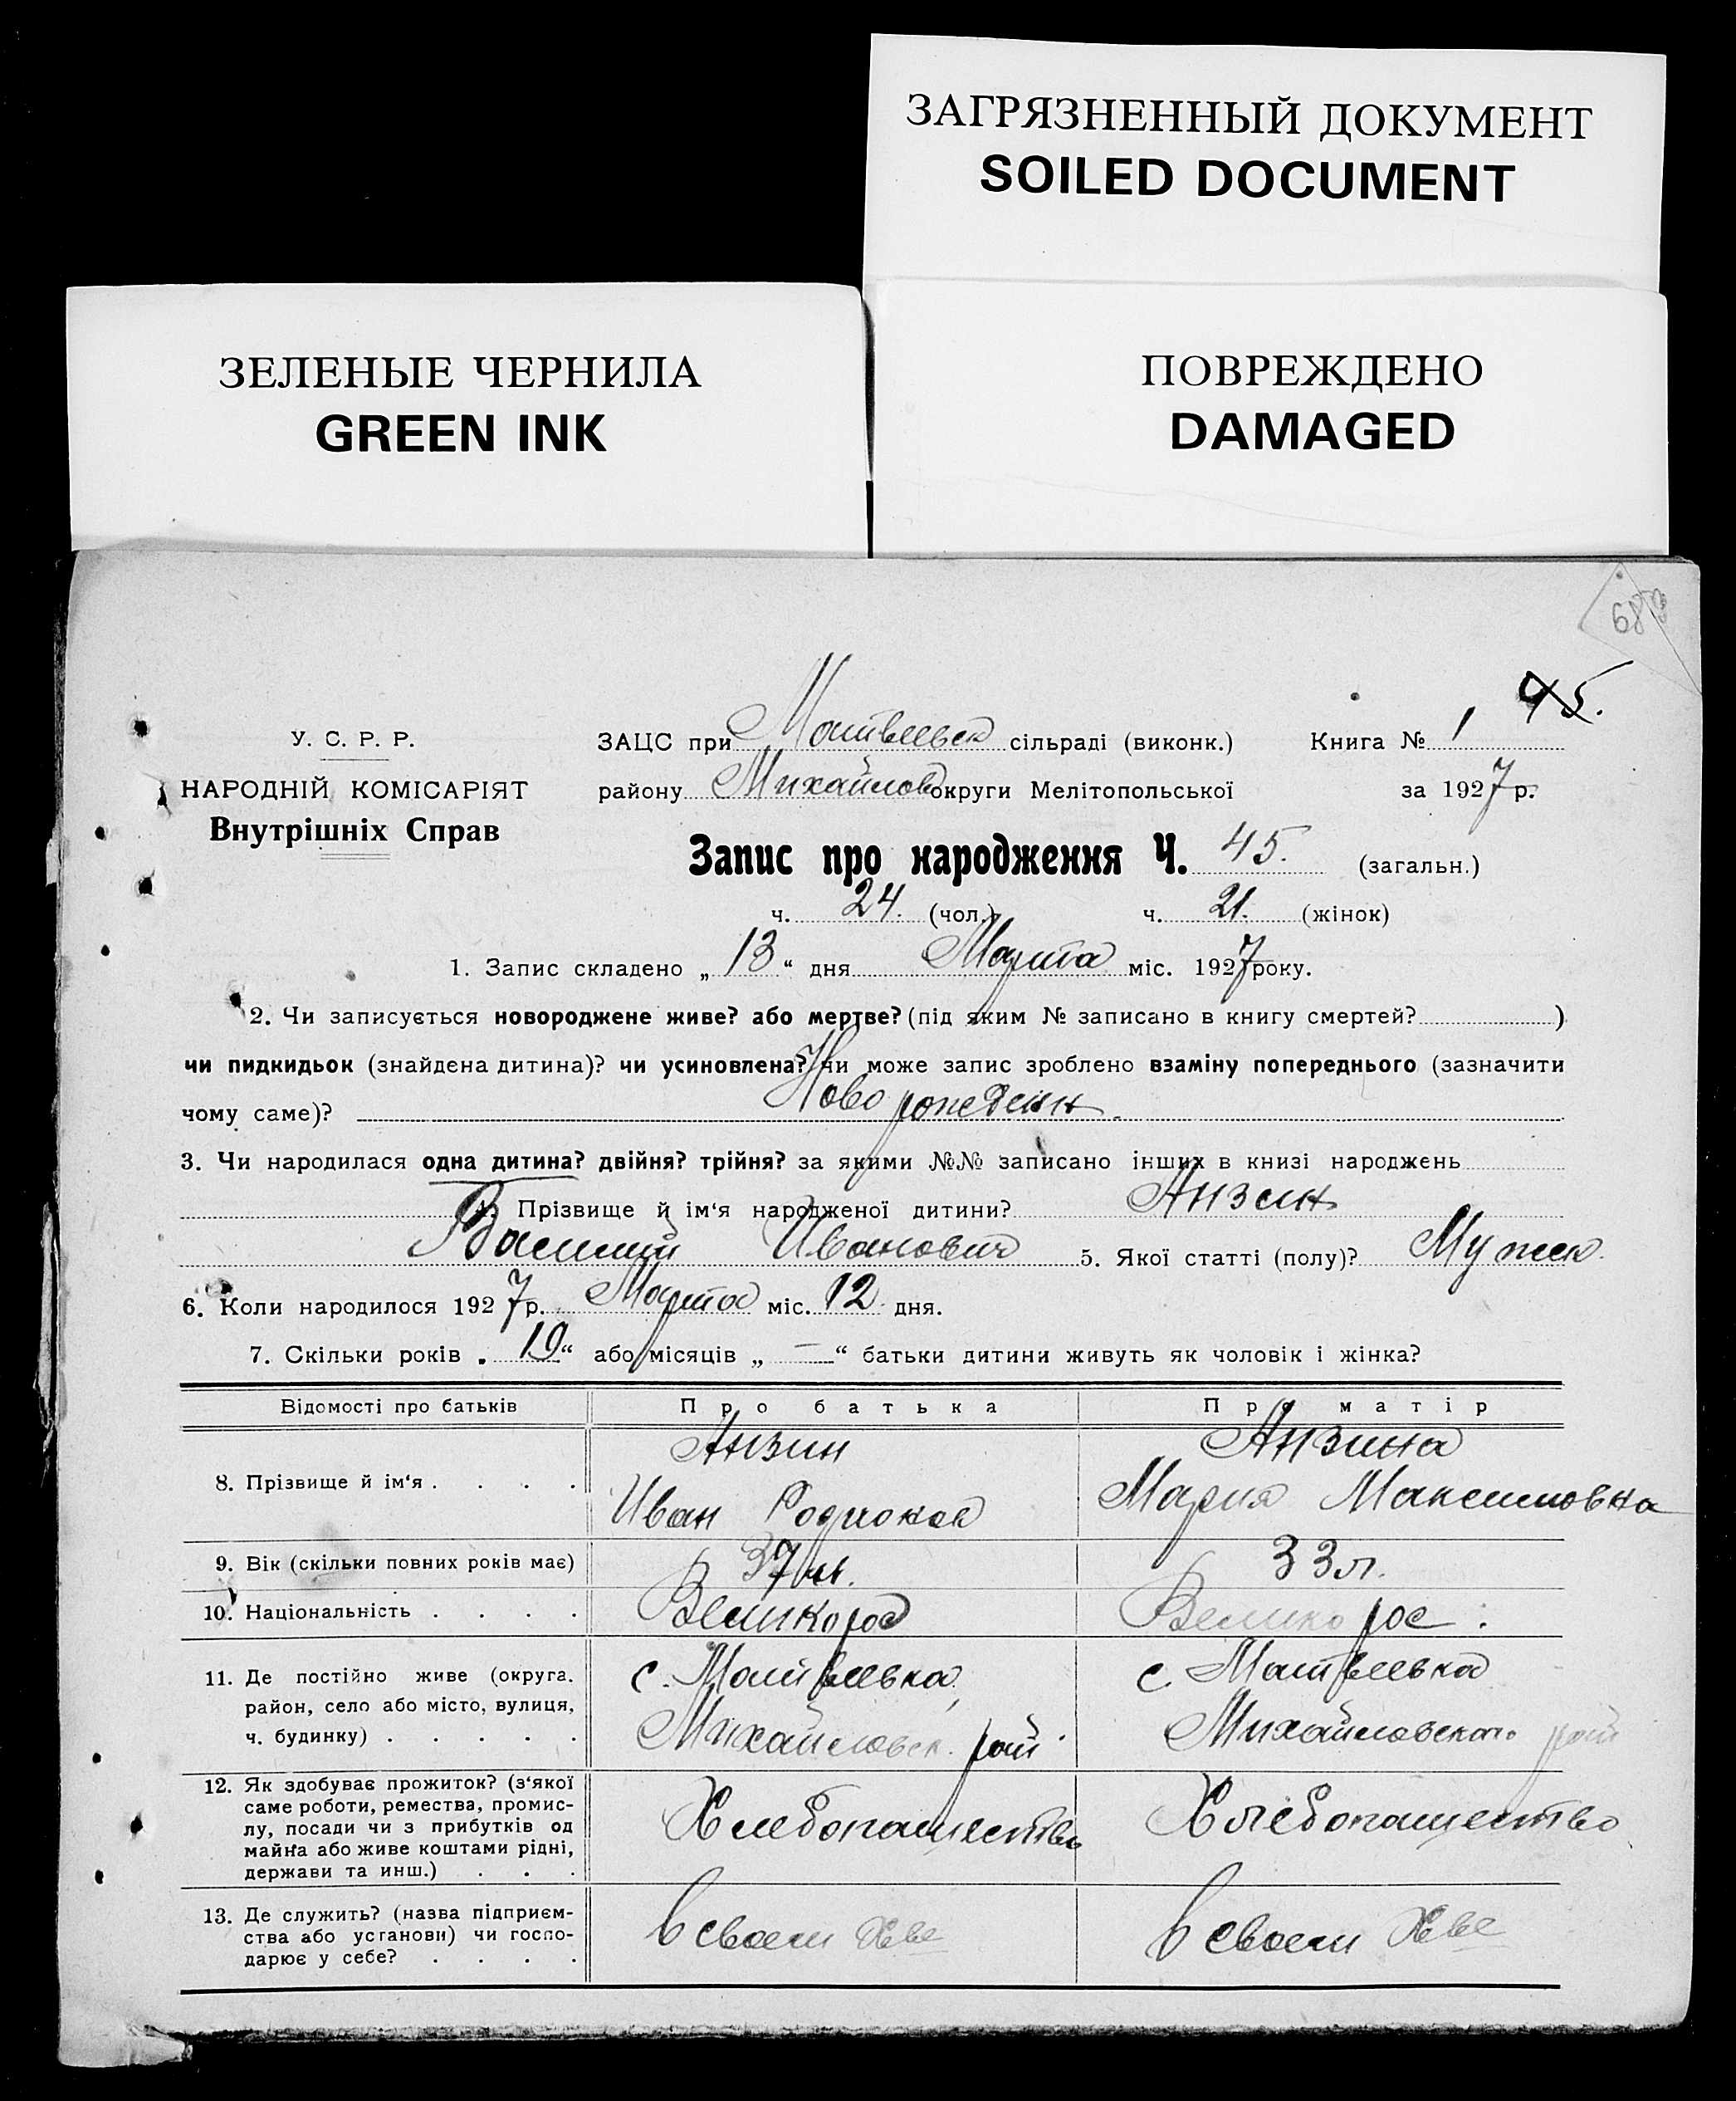 ЗАГРЯЗНЕННЫЙ ДОКУМЕНТ
SOILED DOCUMENT
ЗЕЛЕНЫЕ ЧЕРНИЛА
GREEN INK
ПОВРЕЖДЕНО
DAMAGED
45.
У. С. Р. Р.
НАРОДНІЙ КОМІСАРІЯТ
Внутрішніх Справ
ЗАЦС при Матвеевск сільраді (виконк.) Книга № 1
району Михайлов округи Мелітопольської за 1927 р.
Запис про народження Ч. 45. (загальн.)
ч. 24. (чол.) ч. 21. (жінок)
1. Запис складено „ 13 “ дня Марта міс. 1927 року.
2. Чи записується новороджене живе? або мертве? (під яким № записано в книгу смертей? )
чи пидкидьок (знайдена дитина)? чи усиновлена? чи може запис зроблено взаміну попереднього (зазначити
чому саме)? Новорожденн.
3. Чи народилася одна дитина? двійня? трійня? за якими №№ записано інших в книзі народжень
Прізвище й ім‘я народженої дитини? Анзин
Василий Иванович 5. Якої статті (полу)? Мужск.
6. Коли народилося 1927 р. Марта міс. 12 дня.
7. Скільки років „ 19 “ або місяців „ — “ батьки дитини живуть як чоловік і жінка?
Відомості про батьків Про батька Про матір
8. Прізвище й ім‘я . . . . Анзин Анзина
Иван Мария Максимовна
9. Вік (скільки повних років має) 37 л. 33 л.
10. Національність . . . . Великорос Великорос.
11. Де постійно живе (округа. с. Матвеевка, с. Матвеевка
район, село або місто, вулиця,
ч. будинку) . . . . . Михайловск. рай. Михайловского рай
12. Як здобуває прожиток? (з‘якої
саме роботи, ремества, промис-
лу, посади чи з прибутків од Хлебопашество Хлебопашество
майна або живе коштами рідні,
держави та инш.) . . .
13. Де служить? (назва підприєм-
ства або установи) чи госпо- в своем Хве в своем Хве
дарює у себе? . . . .